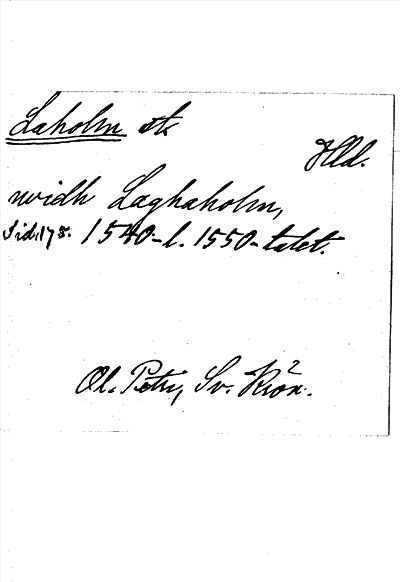 Laholm st.
Hld.
widh Laghaholm,
Sid. 178. 1540- l. 1550-talet.
Ol. Petri, Sv. Krön.²